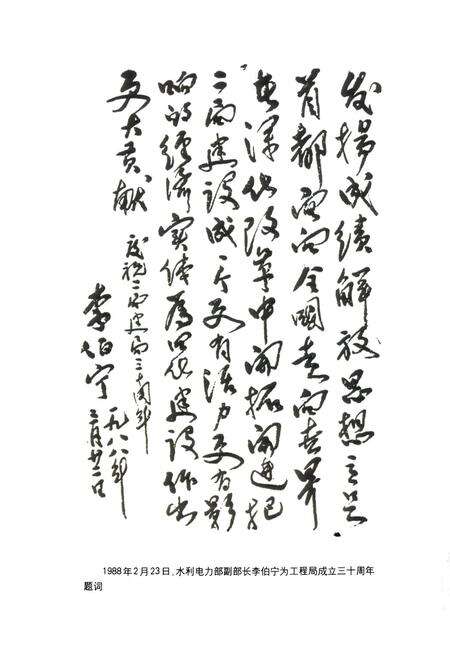 发揚成绩解放思想立足
首都面向全国走向世界
在深化改革中開拓前进把
二局建设成一个更有活力更有影
响的经济实体为四化建设作出
更大贡献
庆祝二局建局三十周年
李伯宁 一九八八年
二月廿三日
1988年2月23日,水利电力部副部长李伯宁为工程局成立三十周年
题词